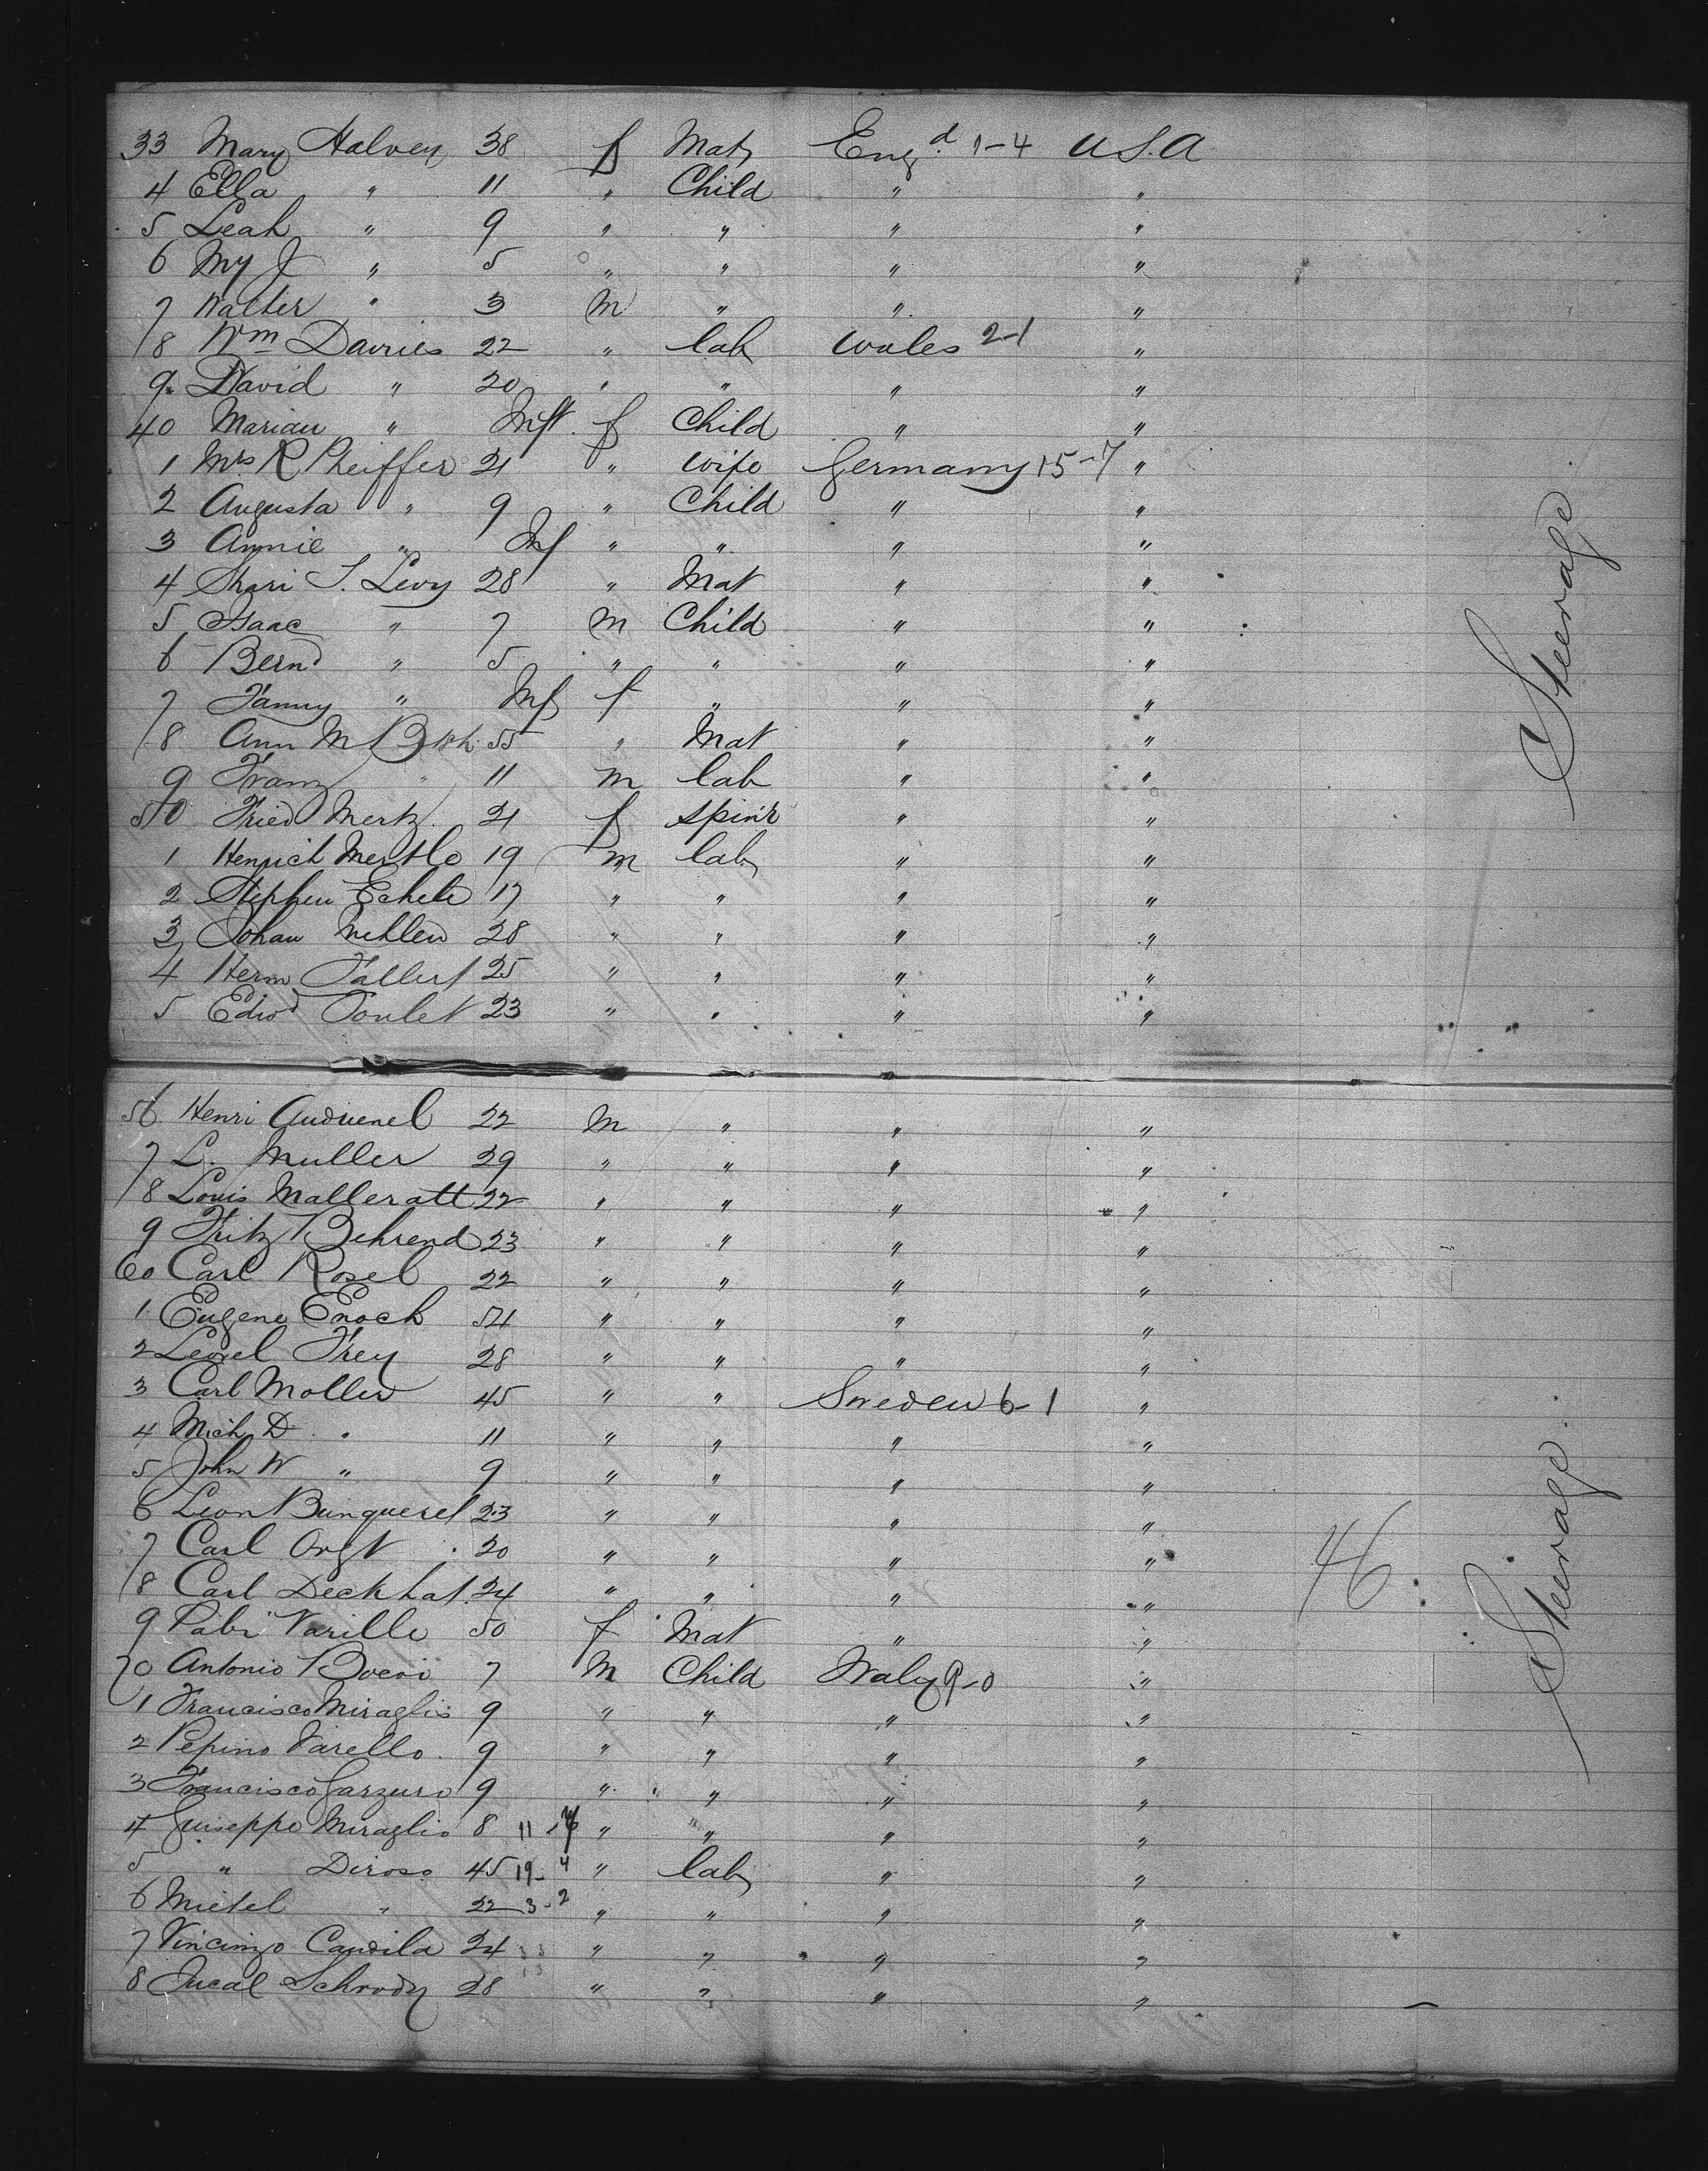 33 Mary Halvey 38 f Mat Eng.d 1-4 U.S.A
4 Ella " 11 " Child " "
5 Leah " 9 " " " "
6 My J " 5 " " " "
7 Walter " 3 m " " "
8 Wm Davies 22 " lab Wales 2-1 "
9 David " 20 " " " "
40 Marian " Inft. f Child " "
1 Mrs R Pheiffer 21 " wife Germany 15-7 "
2 Augusta " 9 " Child " "
3 Annie " Inf " " " "
4 S. Levy 28 " Mat " "
5 Isaac " 7 m Child " "
6 Bernd " 5 " " " "
7 Fanny " Inf f " " "
8 Ann M 55 " Mat " "
9 Franz " 11 m lab " "
50 Fried Mertz 21 f Spin'r " "
1 Henrich 19 m lab " "
2 Stephen Echele 17 " " " "
3 Johan Nehlen 28 " " " "
4 Herm Fallert 25 " " " "
5 Edwd Toulet 23 " " " "
56 Henri 22 m " " "
7 L. Muller 29 " " " "
8 Louis Malleratt 22 " " " "
9 Fritz Behrend 23 " " " "
60 Carl Rosel 22 " " " "
1 Eugene Enoch " " " "
2 Frey 28 " " " "
3 Carl Moller 45 " " Sweden 6-1 "
4 Mich D " 11 " " " "
5 John W " 9 " " " "
6 Leon Bunquerel 23 " " " "
7 Carl Orgt 20 " " " "
8 Carl Deckhat 24 " " " "
9 Varille 50 f Mat " "
70 Antonio 7 m Child Italy 9-0 "
1 Francisco Miraglis 9 " " " "
2 Pepino Varello 9 " " " "
3 Francisco Garzuro 9 " " " "
4 Guiseppe Miraglio 8 11 " " " "
5 " Diroso 45 19-4 " lab " "
6 Mietel " 22 3-2 " " " "
7 Vincinzo Candila 24 " " " "
8 Schrody 28 " " " "
Steerage
46
Steerage